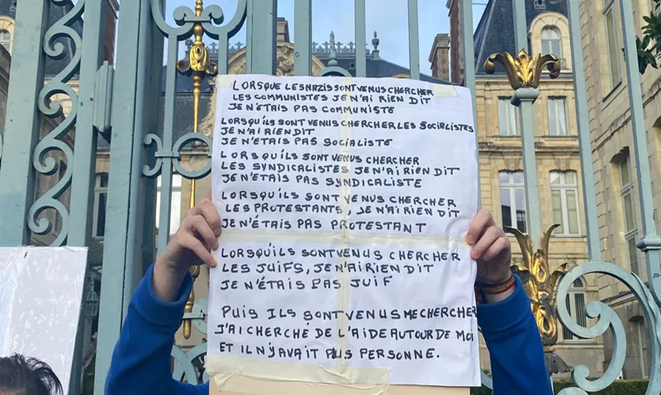 LORSQUE LES NAZIS SONT VENUS CHERCHER
LES COMMUNISTES JE N'AI RIEN DIT
JE N'ÉTAIS PAS COMMUNISTE
LORSQU'ILS SONT VENUS CHERCHER LES SOCIALISTES
JE N'AI RIEN DIT
JE N'ÉTAIS PAS SOCIALISTE
LORSQU'ILS SONT VENUS CHERCHER
LES SYNDICALISTES JE N'AI RIEN DIT
JE N'ÉTAIS PAS SYNDICALISTE
LORSQU'ILS SONT VENUS CHERCHER
LES PROTESTANTS, JE N'AI RIEN DIT
JE N'ÉTAIS PAS PROTESTANT
LORSQU'ILS SONT VENUS CHERCHER
LES JUIFS, JE N'AI RIEN DIT
JE N'ÉTAIS PAS JUIF
PUIS ILS SONT VENUS ME CHERCHER
J'AI CHERCHÉ DE L'AIDE AUTOUR DE MOI
ET IL N'Y AVAIT PLUS PERSONNE.